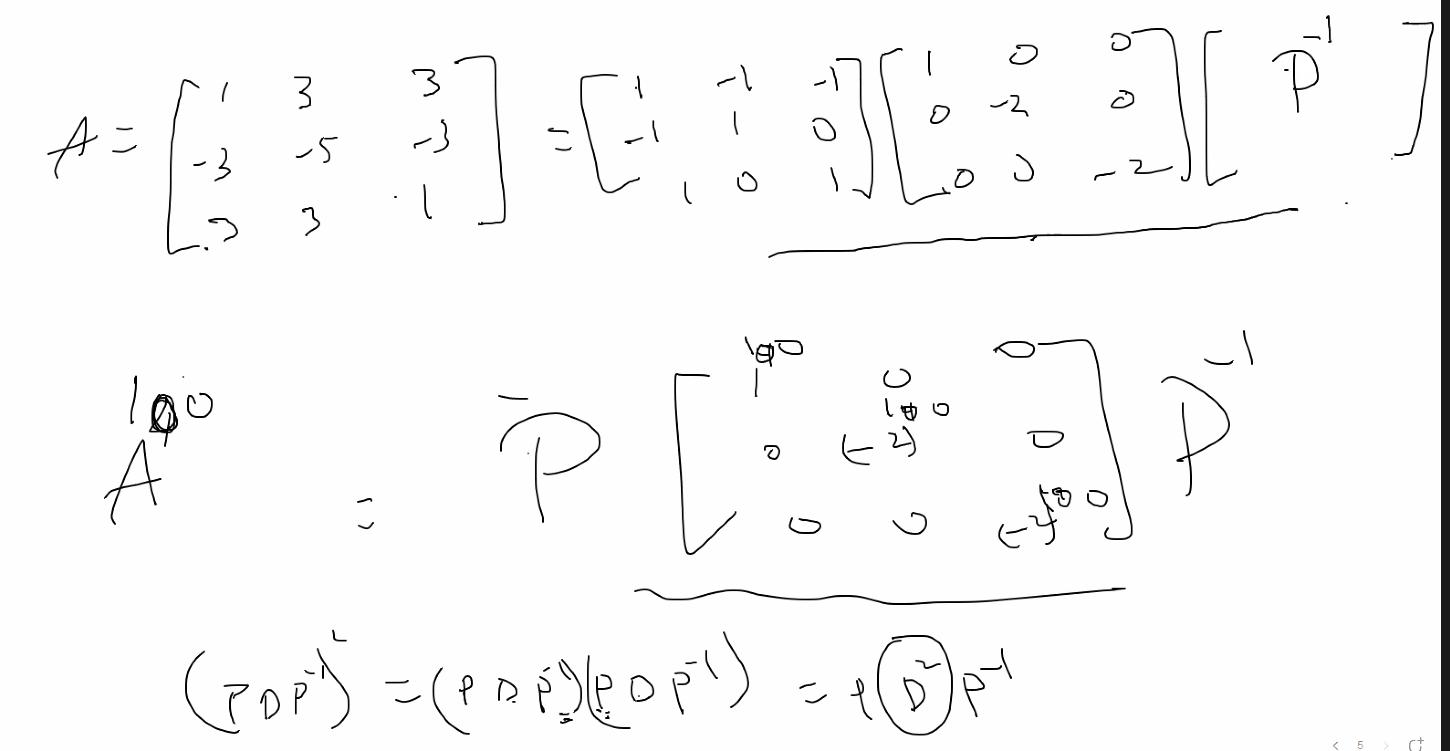 A = [ 1 3 3 ; -3 -5 -3 ; 3 3 1 ] = [ 1 -1 -1 ; -1 1 0 ; 1 0 1 ] [ 1 0 0 ; 0 -2 0 ; 0 0 -2 ] [ P^-1 ]
A^100 = P [ 1^100 0 0 ; 0 (-2)^100 0 ; 0 0 (-2)^100 ] P^-1
(PDP^-1)^2 = (PDP^-1)(PDP^-1) = P D^2 P^-1
5